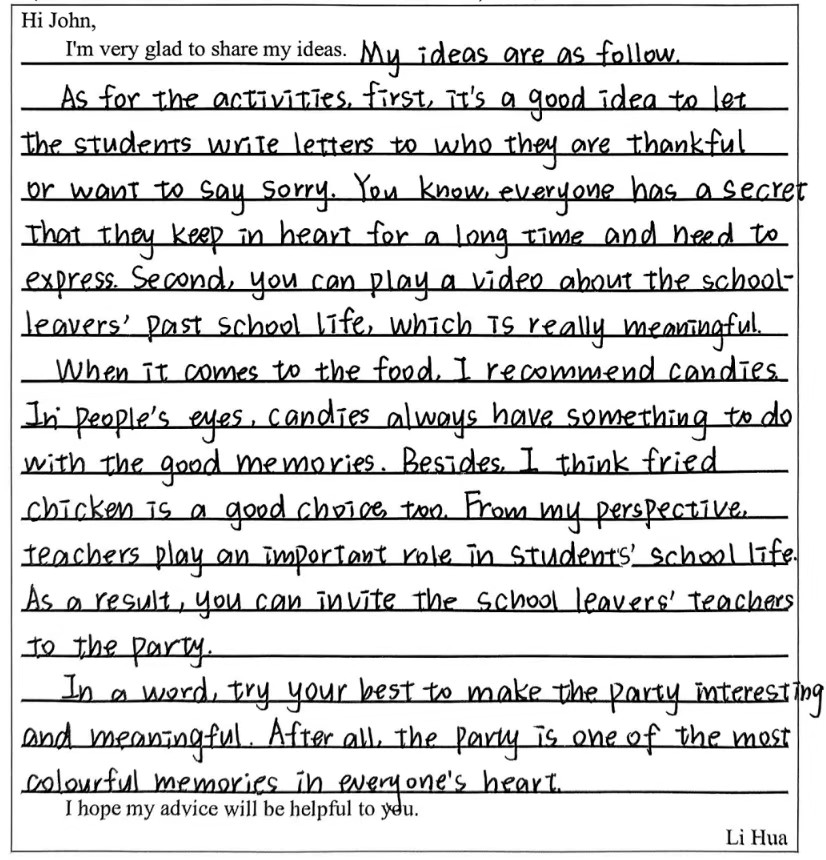 Hi John,
I'm very glad to share my ideas. My ideas are as follow.
As for the activities, first, it's a good idea to let
the students write letters to who they are thankful
or want to say sorry. You know, everyone has a secret
that they keep in heart for a long time and need to
express. Second, you can play a video about the school-
leavers' past school life, which is really meaningful.
When it comes to the food, I recommend candies.
In people's eyes, candies always have something to do
with the good memories. Besides, I think fried
chicken is a good choice, too. From my perspective,
teachers play an important role in students' school life.
As a result, you can invite the school leavers' teachers
to the party.
In a word, try your best to make the party interesting
and meaningful. After all, the party is one of the most
colourful memories in everyone's heart.
I hope my advice will be helpful to you.
Li Hua